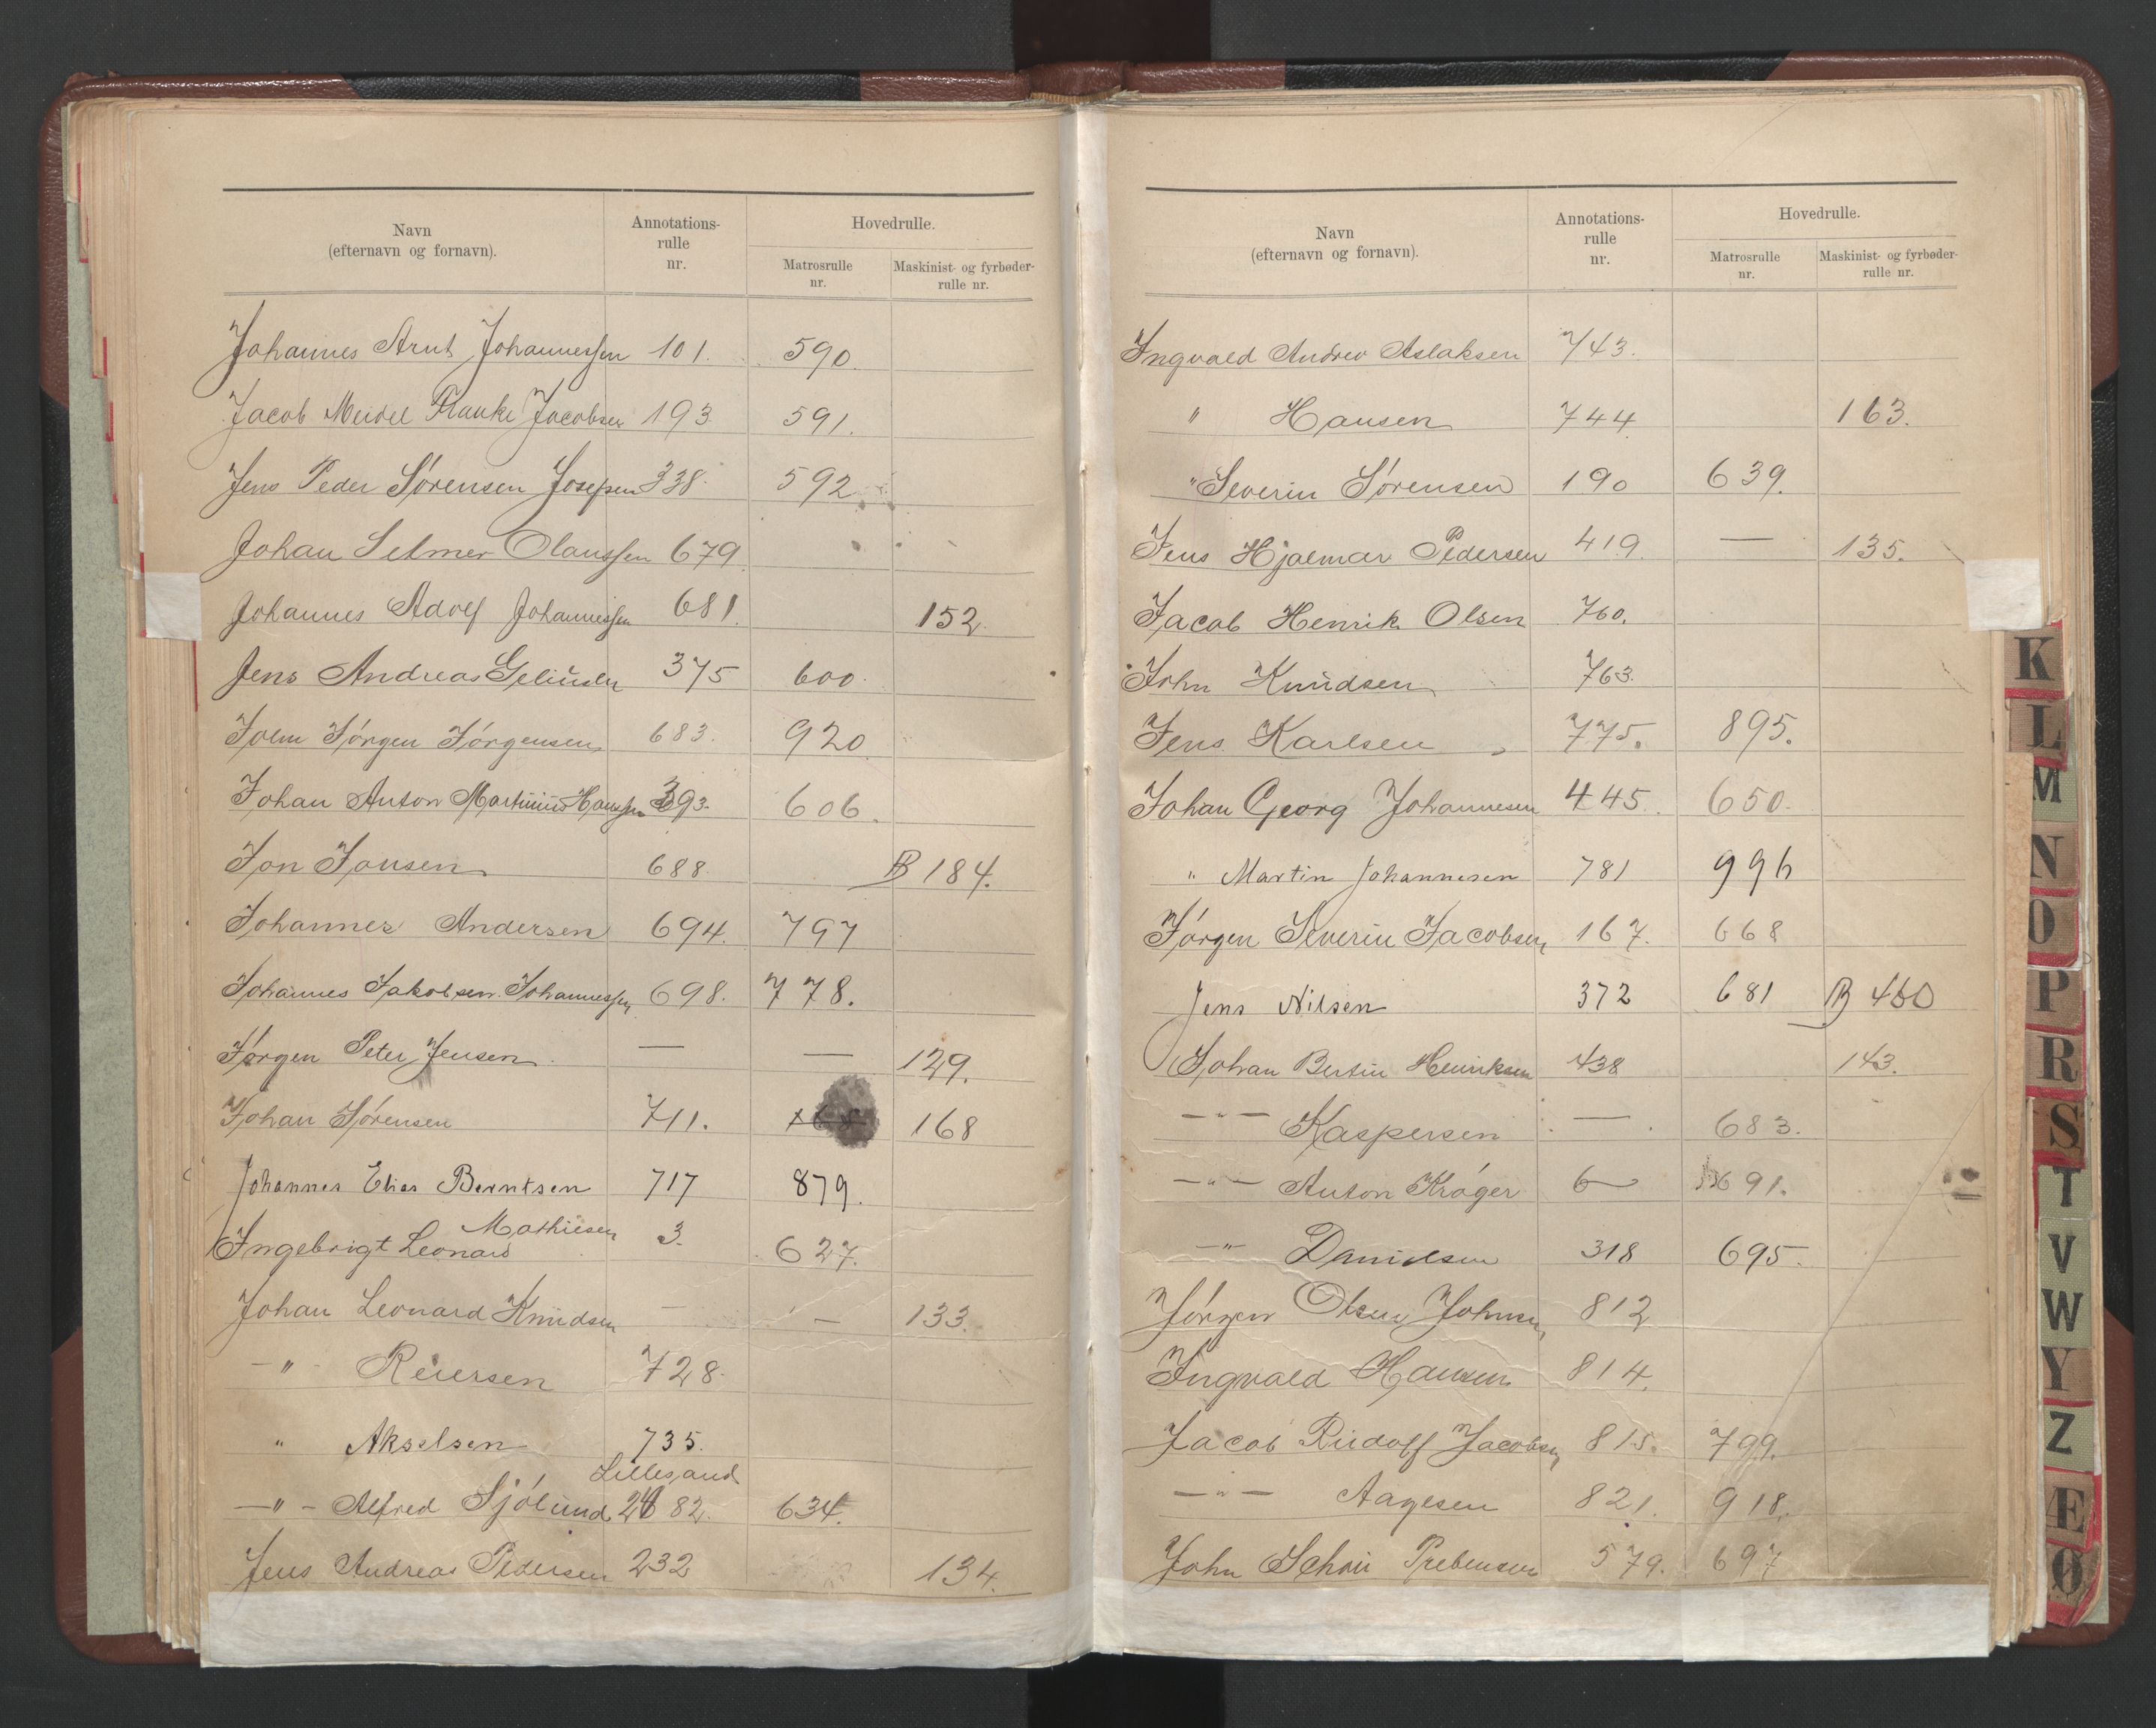 Navn
(efternavn og fornavn).
Annotations-
rulle
nr.
Hovedrulle.
Matrosrulle
nr.
Maskinist- og fyrbøder-
rulle nr.
Johannes Arnt Johannessen 101. 590.
Jacob Meidel Jacobsen 193 591.
Jens Peder Sørensen Josepsen 338. 592
Johan Selmer Olaussen 679
Johannes Adolf Johannessen 681. 152.
Jens Andreas 375 600.
Jørgen Jørgensen 683. 920
Johan Anton Martinius Hanssen 393. 606.
Jon Jonsen 688. B 184.
Johannes Andersen 694. 797
Johannes Jakobsen Johannessen 698. 778.
Jørgen Peter Jensen — — 129.
Johan Sørensen 711. 168
Johannes Elias Berntsen 717 879.
Mathiesen
Ingebrigt Leonard 3. 627.
Johan Leonard Knudsen — — 133.
— " Reiersen 728.
" Akselsen 735.
Lillesand
— " — Alfred Sjölund 82. 634.
Jens Andreas Pedersen 232 134.
Navn
(efternavn og fornavn).
Annotations-
rulle
nr.
Hovedrulle.
Matrosrulle
nr.
Maskinist- og fyrbøder-
rulle nr.
Ingvald Andrew Aslaksen 743.
" Hansen 744 163.
" Severin Sørensen 190 639.
Jens Hjalmar Pedersen 419. — 135.
Jacob Henrik Olsen 760.
John Knudsen 763.
Jens Karlsen 775. 895.
Johan Georg Johannesen 445. 650.
" Martin Johannesen 781 996
Jørgen Severin Jacobsen 167. 668
Jens Nilsen 372 681 B 460
Johan Bertin Henriksen 438 143.
— " — Kaspersen — 683.
— " — Anton Kröger 6 691.
— " Danielsen 318 695.
Jörgen Olsen Johnsen 812
Ingvald Hansen 814.
Jacob Rudolf Jacobsen 815. 799.
— " — Aagesen 821. 918.
John Schou Prebensen 579. 697
K
L
M
N
O
P
R
S
T
V
W
Y
Z
Æ
Ø